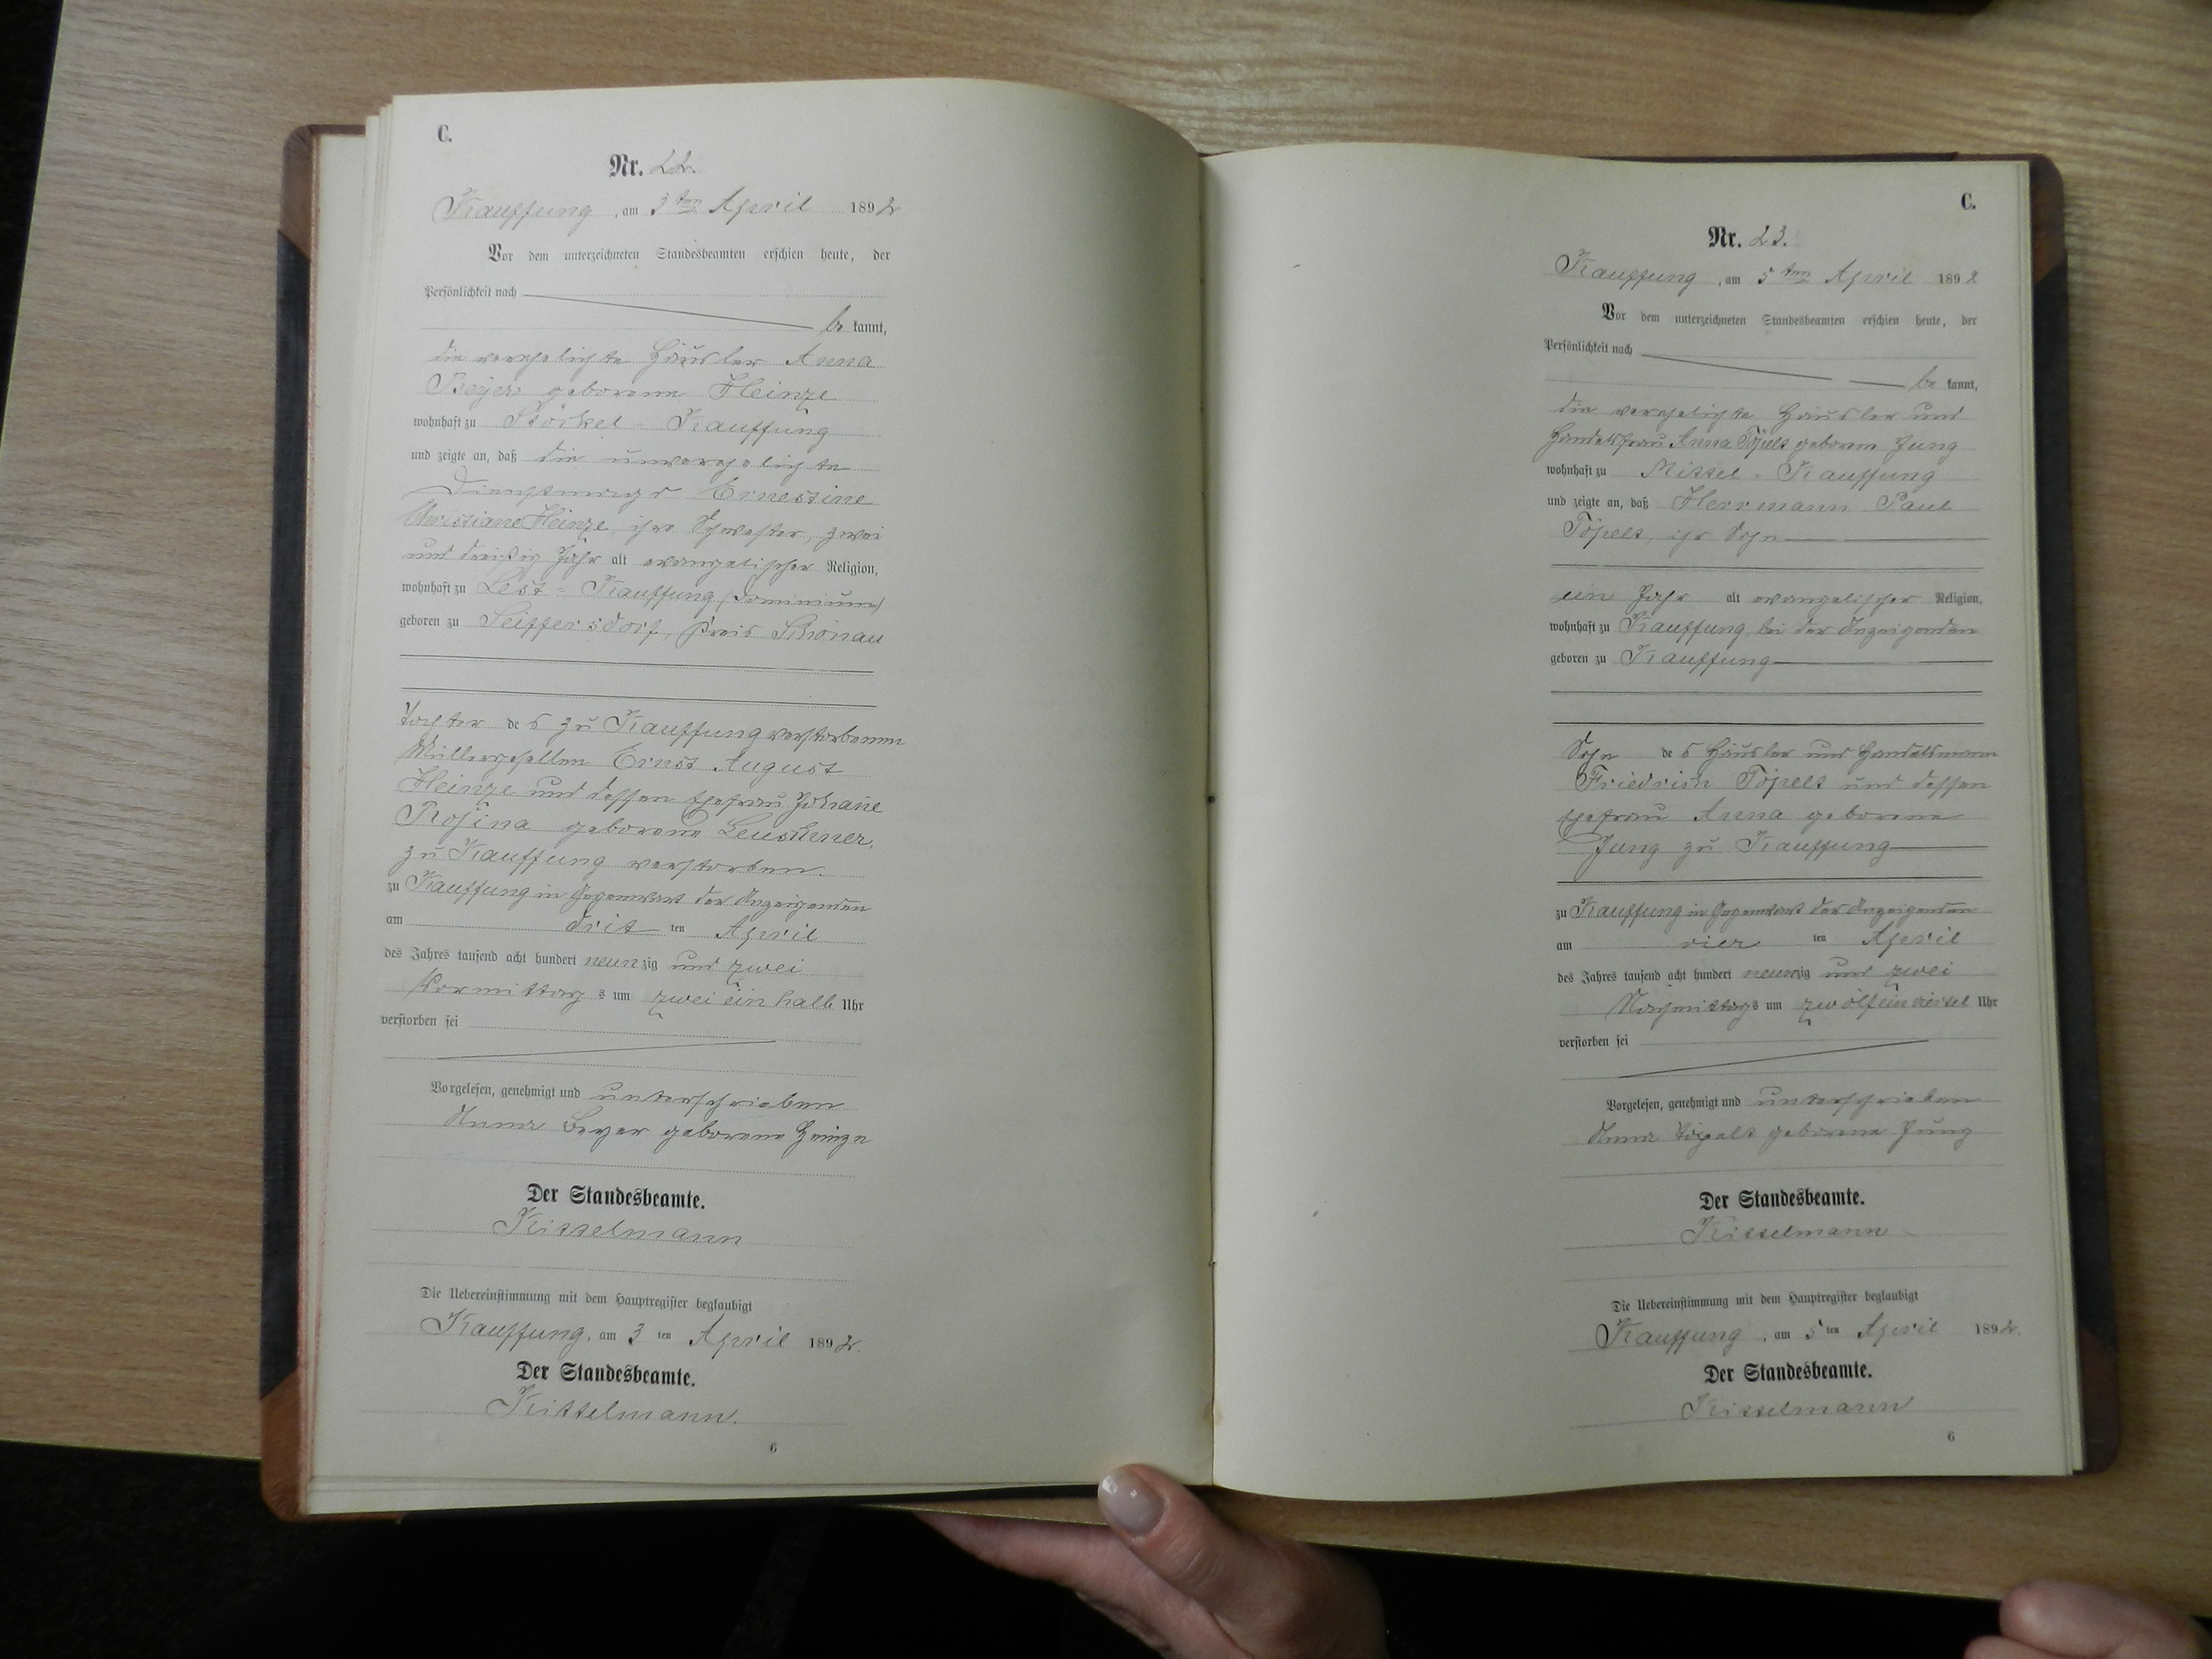 C.
Nr. 22.
Kauffung, am 3ten April 1892
Vor dem unterzeichneten Standesbeamten erschien heute, der
Persönlichkeit nach
be kannt,
die verehelichte Häusler Anna
Beyer geborene Heinze
wohnhaft zu Stöckel-Kauffung
und zeigte an, daß die unverehelichte
Dienstmagd Ernestine
Christiane Heinze, ihre Schwester, zwei
und dreißig Jahr alt evangelischer Religion,
wohnhaft zu Lest-Kauffung (Dominium)
geboren zu Seiffersdorf, Kreis Schönau
Tochter des zu Kauffung verstorbenen
Müllergesellen Ernst August
Heinze und dessen Ehefrau Johane
Rosina geborene Leuschner,
zu Kauffung verstorben.
zu Kauffung in Gegenwart der Anzeigenden
am dritten April
des Jahres tausend acht hundert neunzig und zwei
Vormittags um zwei ein halb Uhr
verstorben sei
Vorgelesen, genehmigt und unterschrieben
Anna Beyer geborene Heinze
Der Standesbeamte.
Kisselmann
Die Uebereinstimmung mit dem Hauptregister beglaubigt
Kauffung, am 3 ten April 1892.
Der Standesbeamte.
Kisselmann.
6
C.
Nr. 23.
Kauffung, am 5ten April 1892
Vor dem unterzeichneten Standesbeamten erschien heute, der
Persönlichkeit nach
be kannt,
die verehelichte Häusler und
Handelsfrau Anna Töpelt geboren Jung
wohnhaft zu Mittel-Kauffung
und zeigte an, daß Herrmann Paul
Töpelt, ihr Sohn
ein Jahr alt evangelischer Religion,
wohnhaft zu Kauffung bei der Anzeigenden
geboren zu Kauffung
Sohn des Häusler und Handelsmann
Friedrich Töpelt und dessen
Ehefrau Anna geborene
Jung zu Kauffung
zu Kauffung in Gegenwart der Anzeigenden
am vier ten April
des Jahres tausend acht hundert neunzig und zwei
Nachmittags um zwölf ein viertel Uhr
verstorben sei
Vorgelesen, genehmigt und unterschrieben
Anna Töpelt geborene Jung
Der Standesbeamte.
Kisselmann
Die Uebereinstimmung mit dem Hauptregister beglaubigt
Kauffung, am 5 ten April 1892.
Der Standesbeamte.
Kisselmann
6